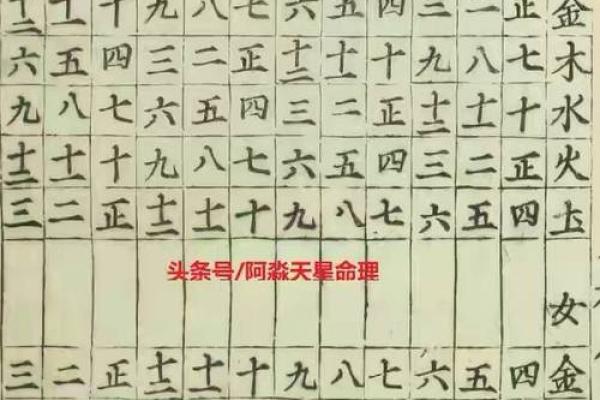 金 正 二 三 四 五 六 七 八 九 十 十一 十二
木 七 八 九 十 十一 十二 正 二 三 四 五 六
水 十 十一 十二 正 二 三 四 五 六 七 八 九
火 正 二 三 四 五 六 七 八 九 十 十一 十二
土 四 五 六 七 八 九 十 十一 十二 正 二 三
头条号/阿淼天星命理
女
金 四 五 六 七 八 九 十 十一 十二 正 二 三